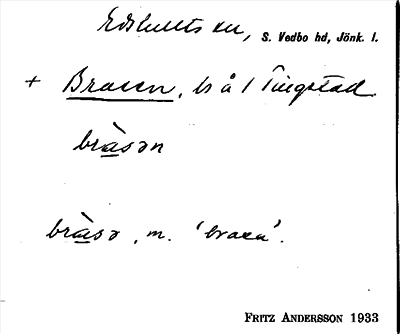 Edshults sn, S. Vedbo hd, Jönk. l.
+ Brasen, ls å / Tingstad
bràsən
bràsə, m. 'brasa'.
FRITZ ANDERSSON 1933